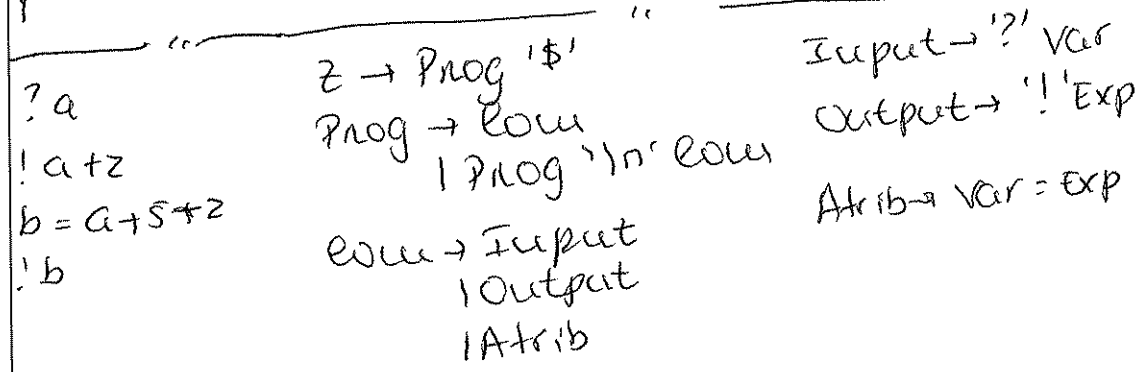 ? a
! a+2
b = a+5+2
! b
Z → Prog '$'
Prog → Com
| Prog '\n' Com
Com → Input
| Output
| Atrib
Input → '?' Var
Output → '!' Exp
Atrib → Var = Exp